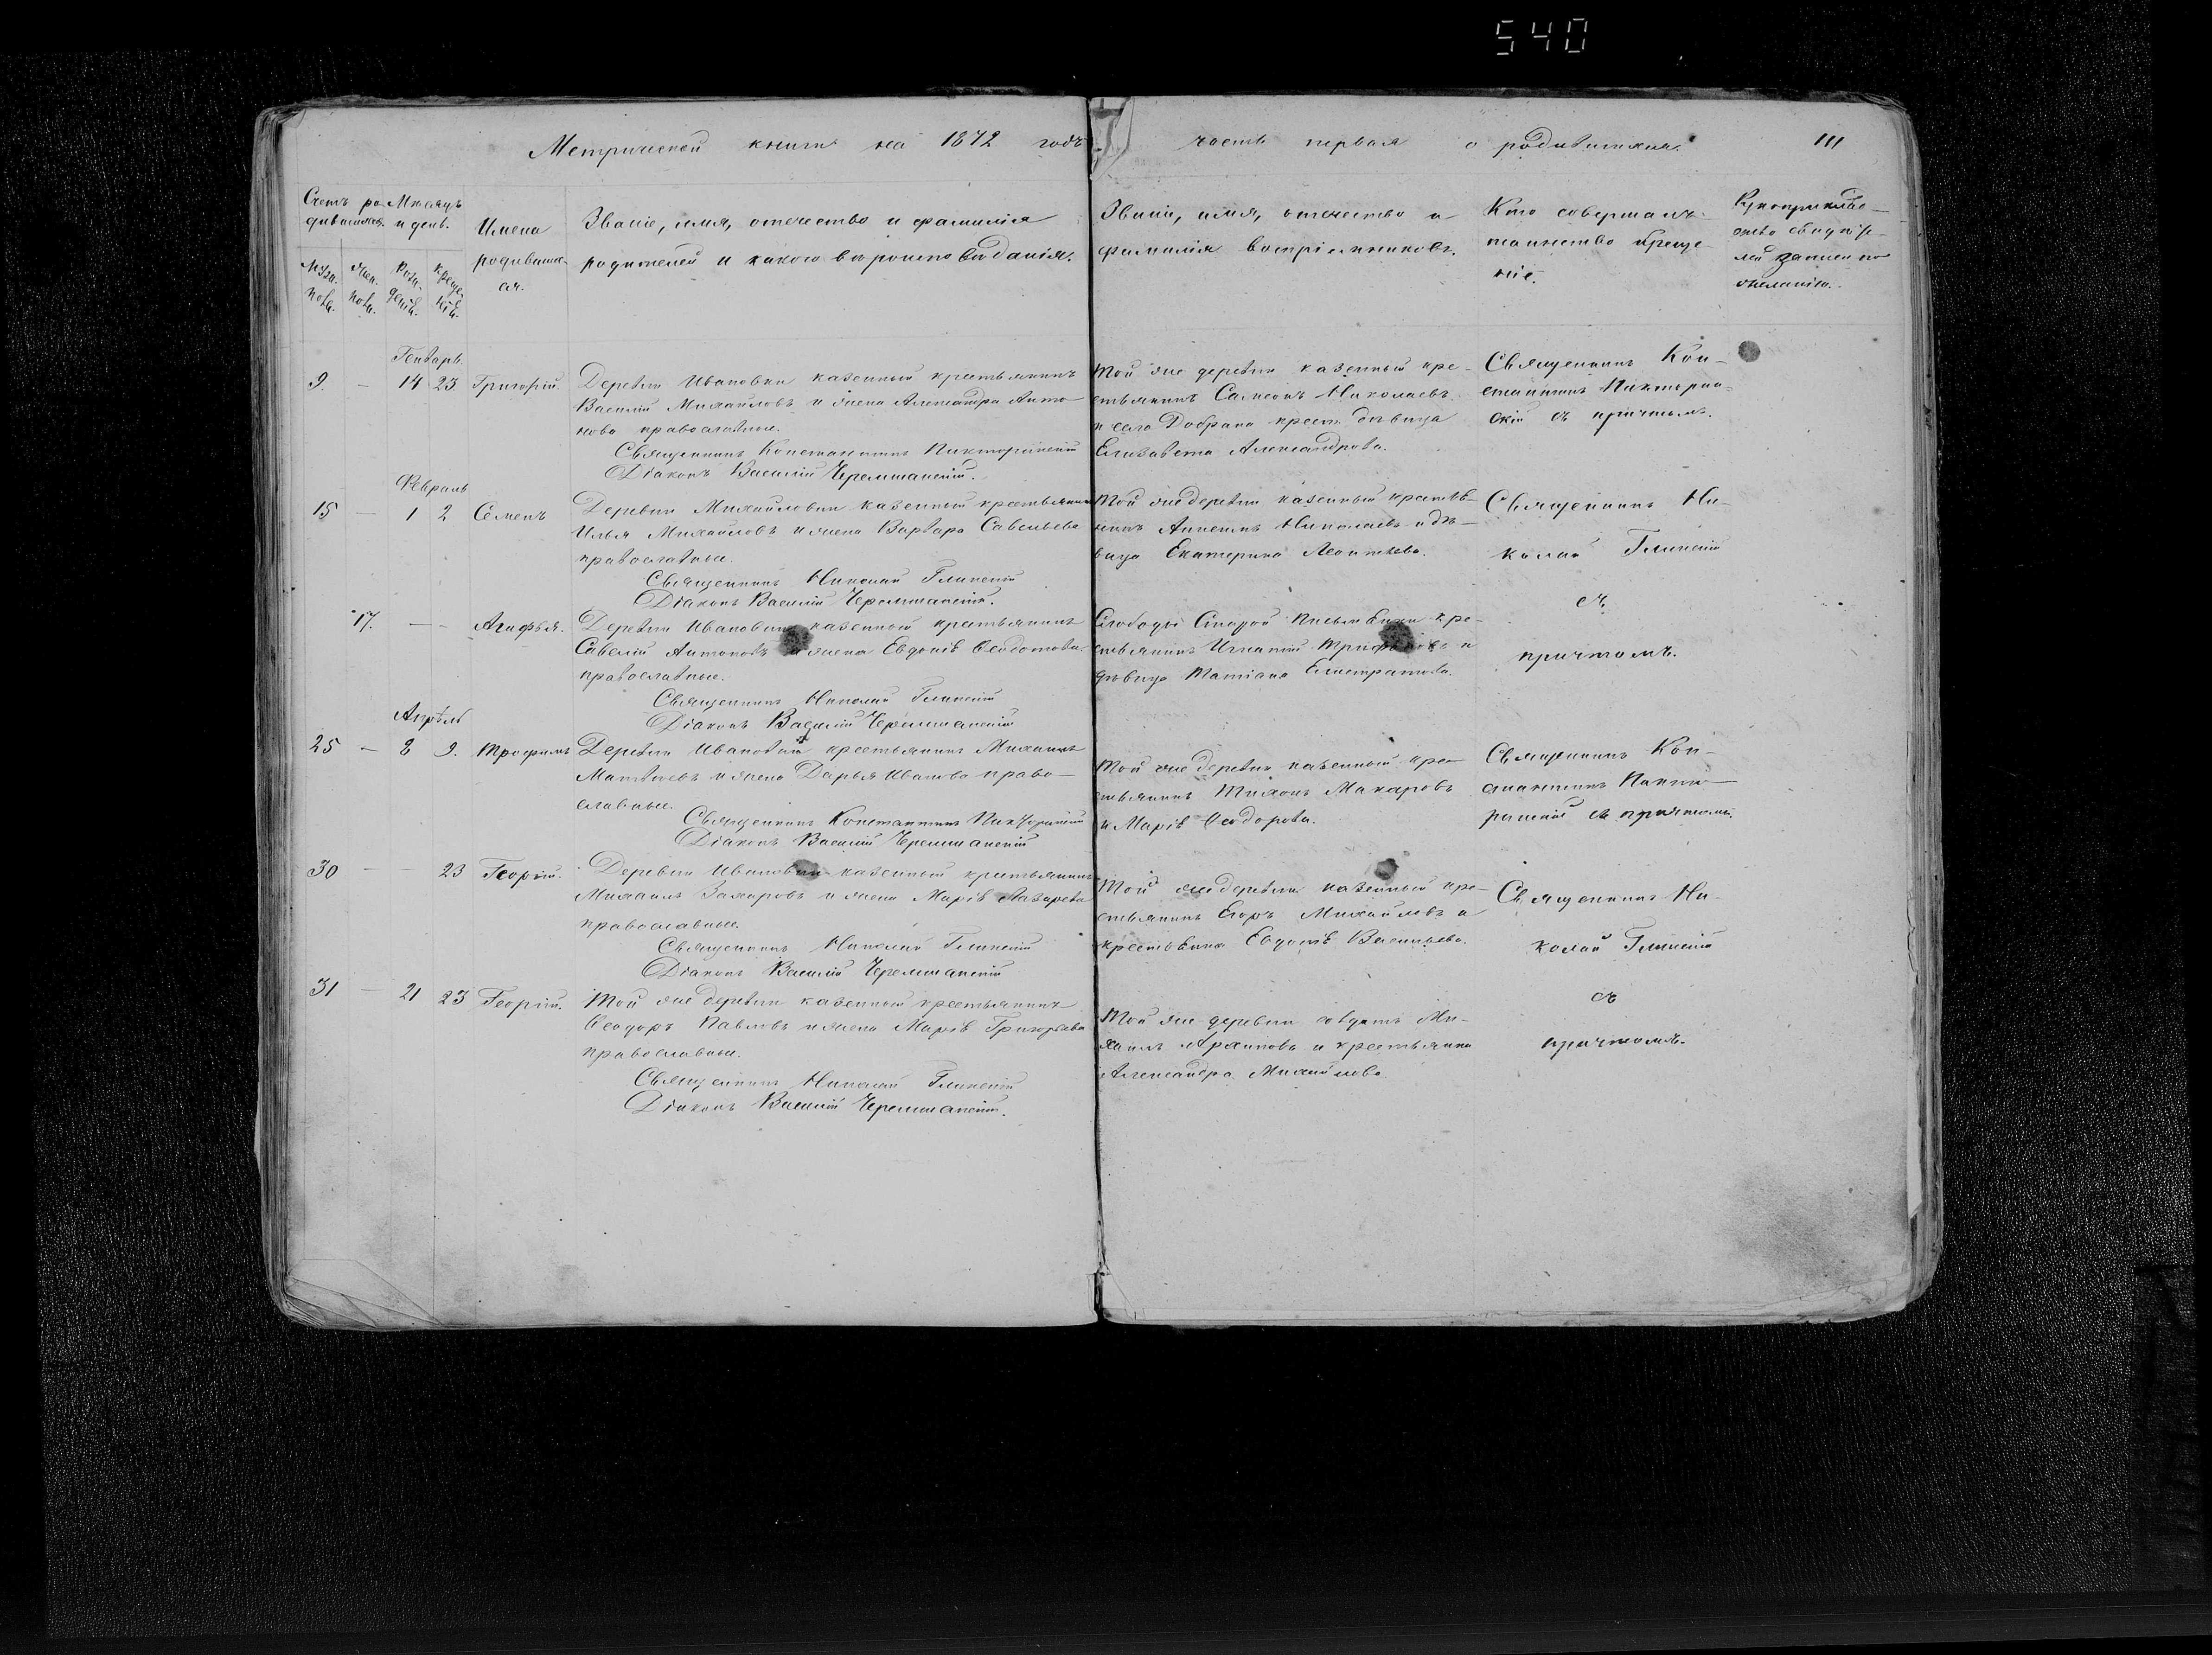 540
Метрической книги на 1872 годъ
часть первая о родившихся.
111
Счетъ ро-
дившихся.
Мѣсяцъ
и день.
Имена
родивших-
ся.
Званіе, имя, отечество и фамилія
родителей и какого вѣроисповѣданія.
Муже.
пола.
Жен.
пола.
Рож-
денія.
Креще-
нія.
Званіе, имя, отечество и
фамилія воспріемниковъ.
Кто совершалъ
таинство креще-
нія.
Рукоприклад-
ство свидѣте-
лей записи по
желанію.
Генварь
9 — 14 23 Григорій
Деревни Ивановки казенный крестьянинъ
Василій Михайловъ и жена Александра Анто-
нова православные.
Священникъ Константинъ Пикторинскій
Діаконъ Василій Черемшанскій.
Той же деревни казенный кре-
стьянинъ Самсонъ Николаевъ
и села Добрина крест. дѣвица
Елизавета Александрова.
Священникъ Кон-
стантинъ Пикторин-
скій съ причтомъ.
Февраль
15 — 1 2 Семенъ
Деревни Михайловки казенный крестьянинъ
Илья Михайловъ и жена Варвара Савельева
православные.
Священникъ Николай Глинскій
Діаконъ Василій Черемшанскій.
Той же деревни казенный крестья-
нинъ Николаевъ и дѣ-
вица Екатерина Леонтьева.
Священникъ Ни-
колай Глинскій
съ
причтомъ.
17. — — Агафья.
Деревни Ивановки казенный крестьянинъ
Савелій Антоновъ и жена Евдокія Ѳеодотова
православные.
Священникъ Николай Глинскій
Діаконъ Василій Черемшанскій
Слободы Старой Письмянки кре-
стьянинъ Игнатій Трифоновъ и
дѣвица Татіана Елистратова.
Апрѣль
25 — 8 9. Трофимъ
Деревни Ивановки крестьянинъ Михаилъ
Матвѣевъ и жена Дарья Иванова право-
славные.
Священникъ Константинъ Пикторинскій
Діаконъ Василій Черемшанскій
Той же деревни казенный кре-
стьянинъ Тихонъ Макаровъ
и Марія Ѳеодорова.
Священникъ Кон-
стантинъ Пикто-
ринскій съ причтомъ.
30 — — 23 Георгій.
Деревни Ивановки казенный крестьянинъ
Михаилъ Захаровъ и жена Марія Лазарева
православные.
Священникъ Николай Глинскій
Діаконъ Василій Черемшанскій
Той же деревни казенный кре-
стьянинъ Егоръ Михайловъ и
крестьянка Евдокія Васильева.
Священникъ Ни-
колай Глинскій
съ
причтомъ.
31 — 21 23 Георгій.
Той же деревни казенный крестьянинъ
Ѳеодоръ Павловъ и жена Марія Григорьева
православные.
Священникъ Николай Глинскій
Діаконъ Василій Черемшанскій.
Той же деревни солдатъ Ми-
хаилъ Архиповъ и крестьянка
Александра Михайлова